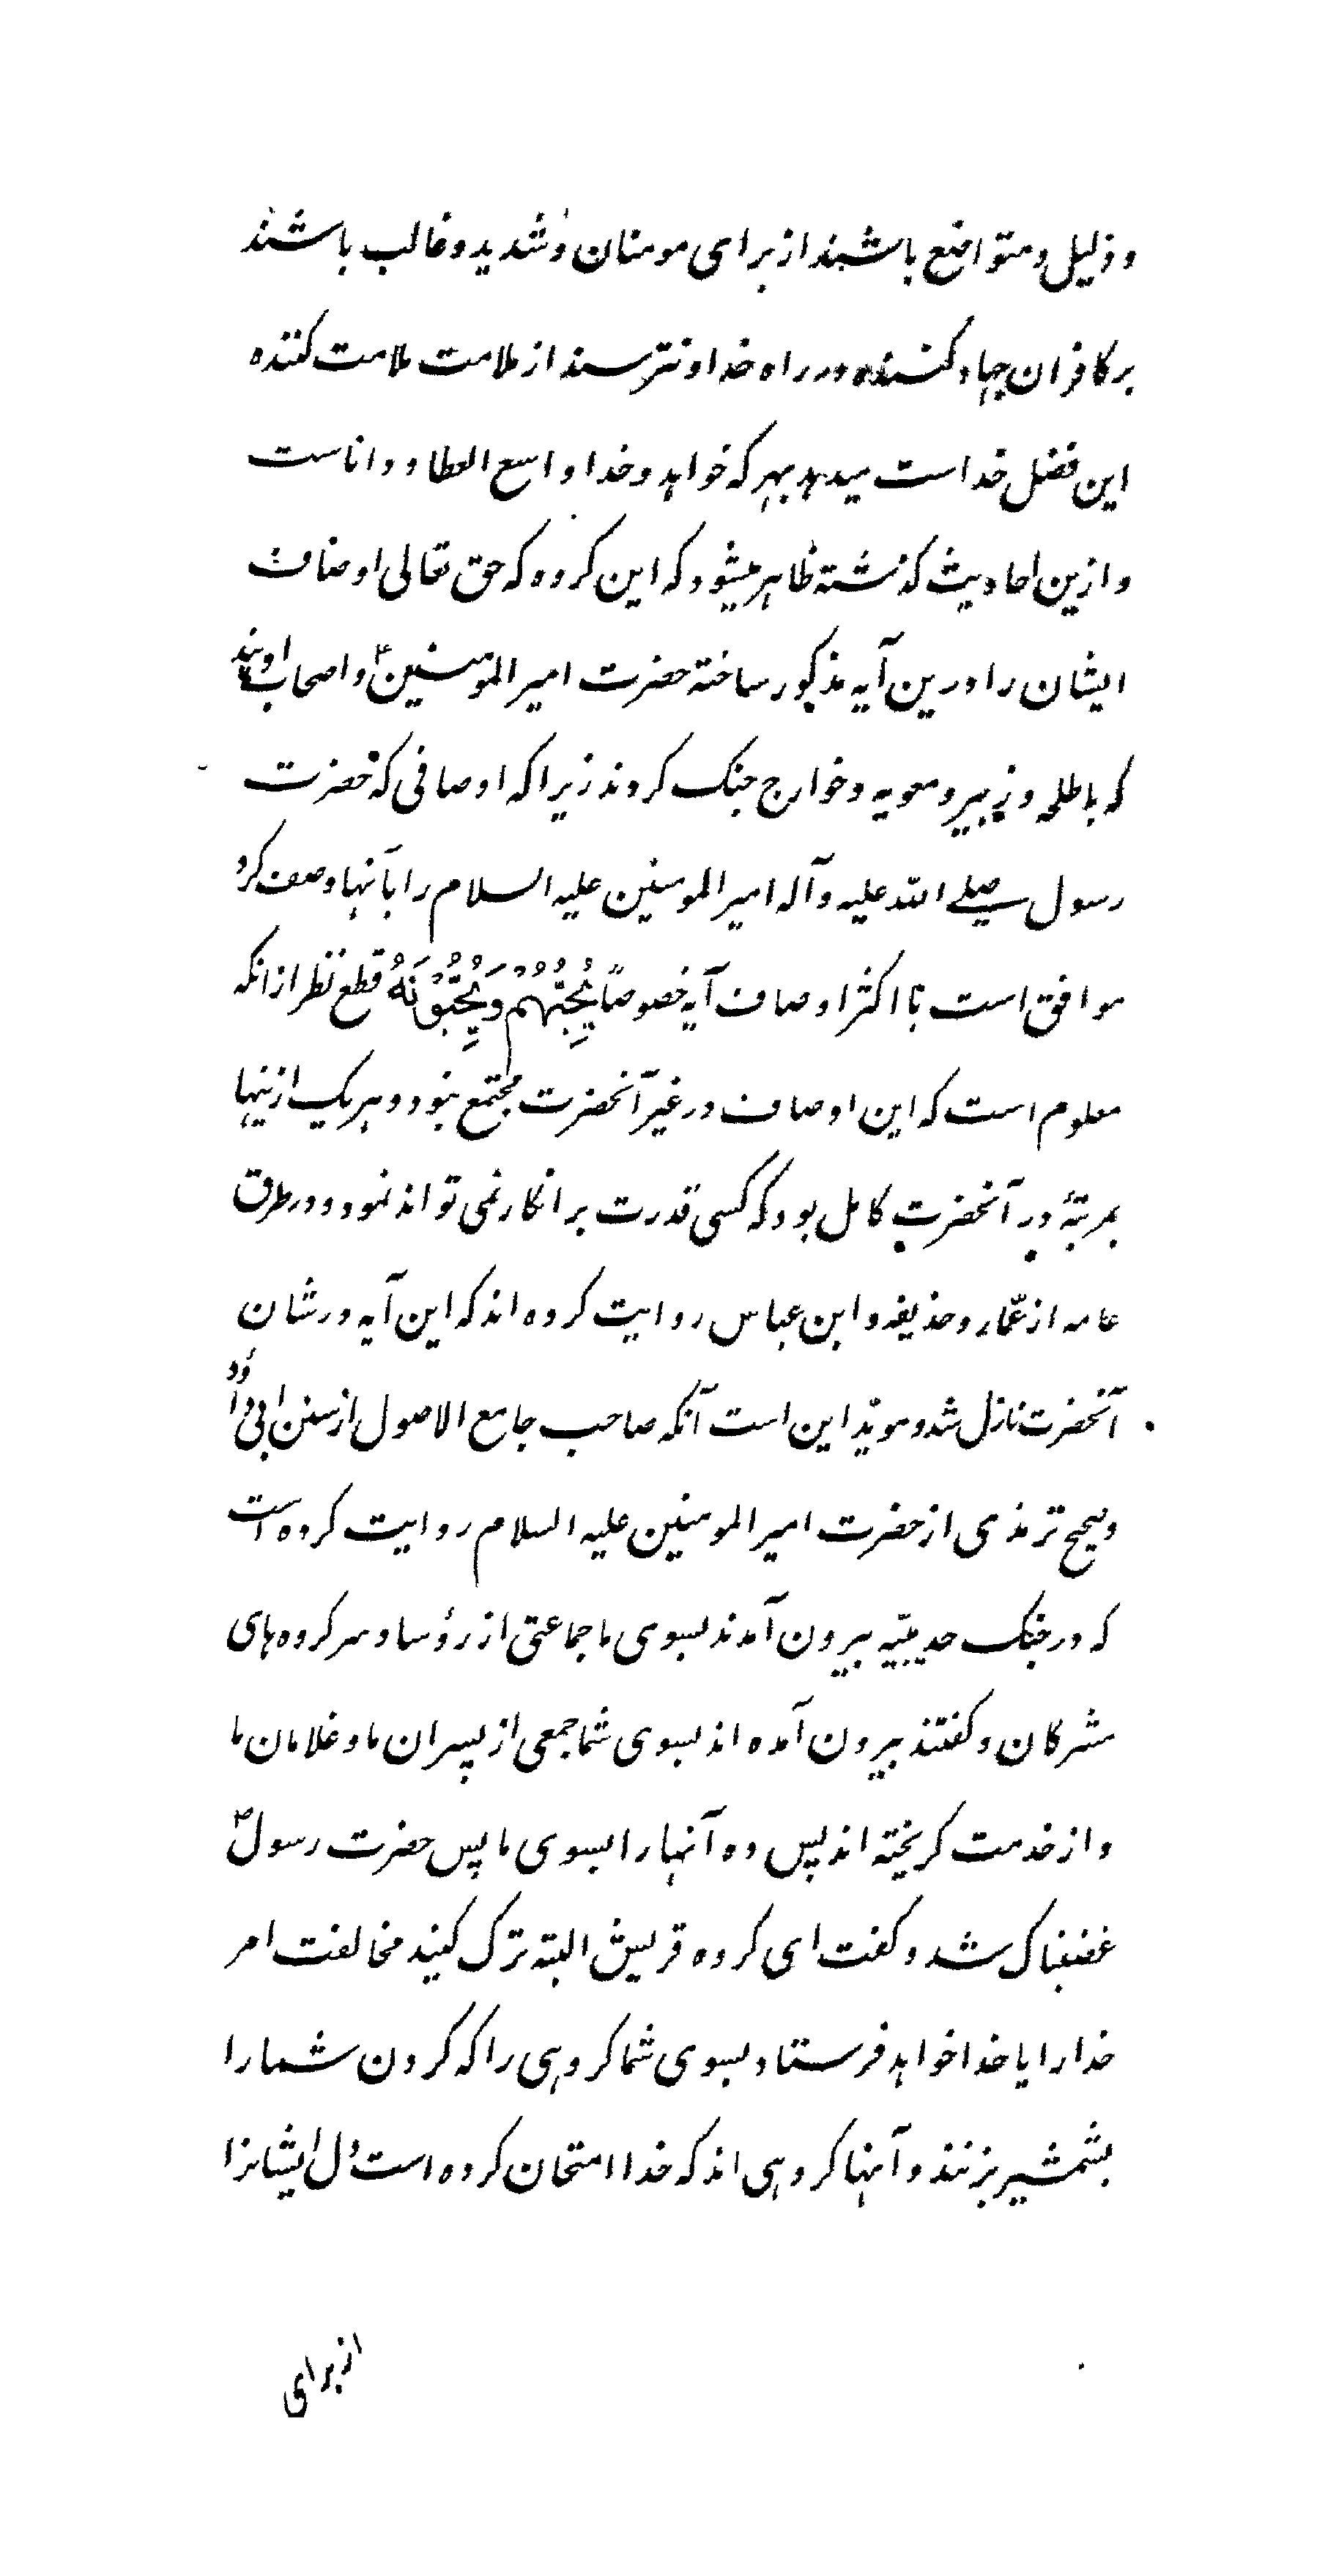 و ذلیل و متواضع باشند از برای مومنان و شدید و غالب باشند
بر کافران جهاد کننده در راه خدا و نترسند از ملامت ملامت کننده
این فضل خداست میدهد بهر که خواهد و خدا واسع العطا و داناست
و ازین احادیث گذشته ظاهر میشود که این گروه که حق تعالی اوصاف
ایشان را درین آیه مذکور ساخته حضرت امیر المومنین و اصحاب اویند
که با طلحه و زبیر و معویه و خوارج جنک کردند زیرا که اوصافی که حضرت
رسول صلے الله علیه و آله امیر المومنین علیه السلام را بآنها وصف کرد
موافق است با اکثر اوصاف آیه خصوصاً یُحِبُّهُمْ وَیُحِبُّوْنَهُ قطع نظر از انکه
معلوم است که این اوصاف در غیر آنحضرت مجتمع نبود و هر یک ازینها
بمرتبهٔ در آنحضرت کامل بود که کسی قدرت بر انکار نمی تواند نمود و در طرق
عامه از عمّار و حذیفه و ابن عباس روایت کرده اند که این آیه در شان
آنحضرت نازل شد و موید این است آنکه صاحب جامع الاصول از سنن ابی داؤد
و صحیح ترمذی از حضرت امیر المومنین علیه السلام روایت کرده است
که در جنک حدیبیّه بیرون آمدند بسوی ما جماعتی از رؤسا و سرکروه های
مشرکان و کفتند بیرون آمده اند بسوی شما جمعی از پسران ما و غلامان ما
و از خدمت کریخته اند پس ده آنها را بسوی ما پس حضرت رسول ص
غضبناک شد و کفت ای کروه قریش البته ترک کنید مخالفت امر
خدا را یا خدا خواهد فرستاد بسوی شما کروهی را که کردن شما را
بشمشیر بزنند و آنها کروهی اند که خدا امتحان کرده است دل ایشانرا
از برای